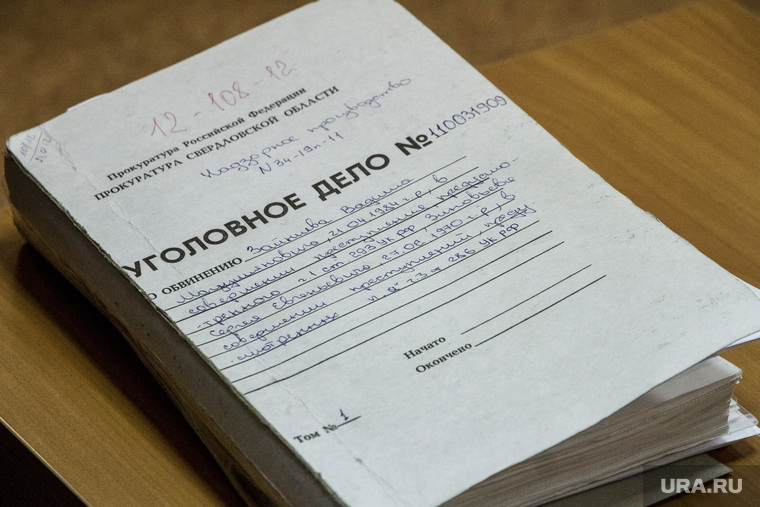 12-108-12
Прокуратура Российской Федерации
ПРОКУРАТУРА СВЕРДЛОВСКОЙ ОБЛАСТИ
Надзорное производство
N34-19п-11
УГОЛОВНОЕ ДЕЛО № 110031909
ПО ОБВИНЕНИЮ Зайцева Вадима
21.04.1984 г.р., в
совершении преступления, предусмо-
-тренного ч.1 ст. 293 УК РФ, Зиновьева
Сергея Евгеньевича 27.08.1970 г.р., в
совершении преступлений, преду-
-смотренных п. "а" ч.3 ст. 286 УК РФ
Начато
Окончено
Том № 1
URA.RU